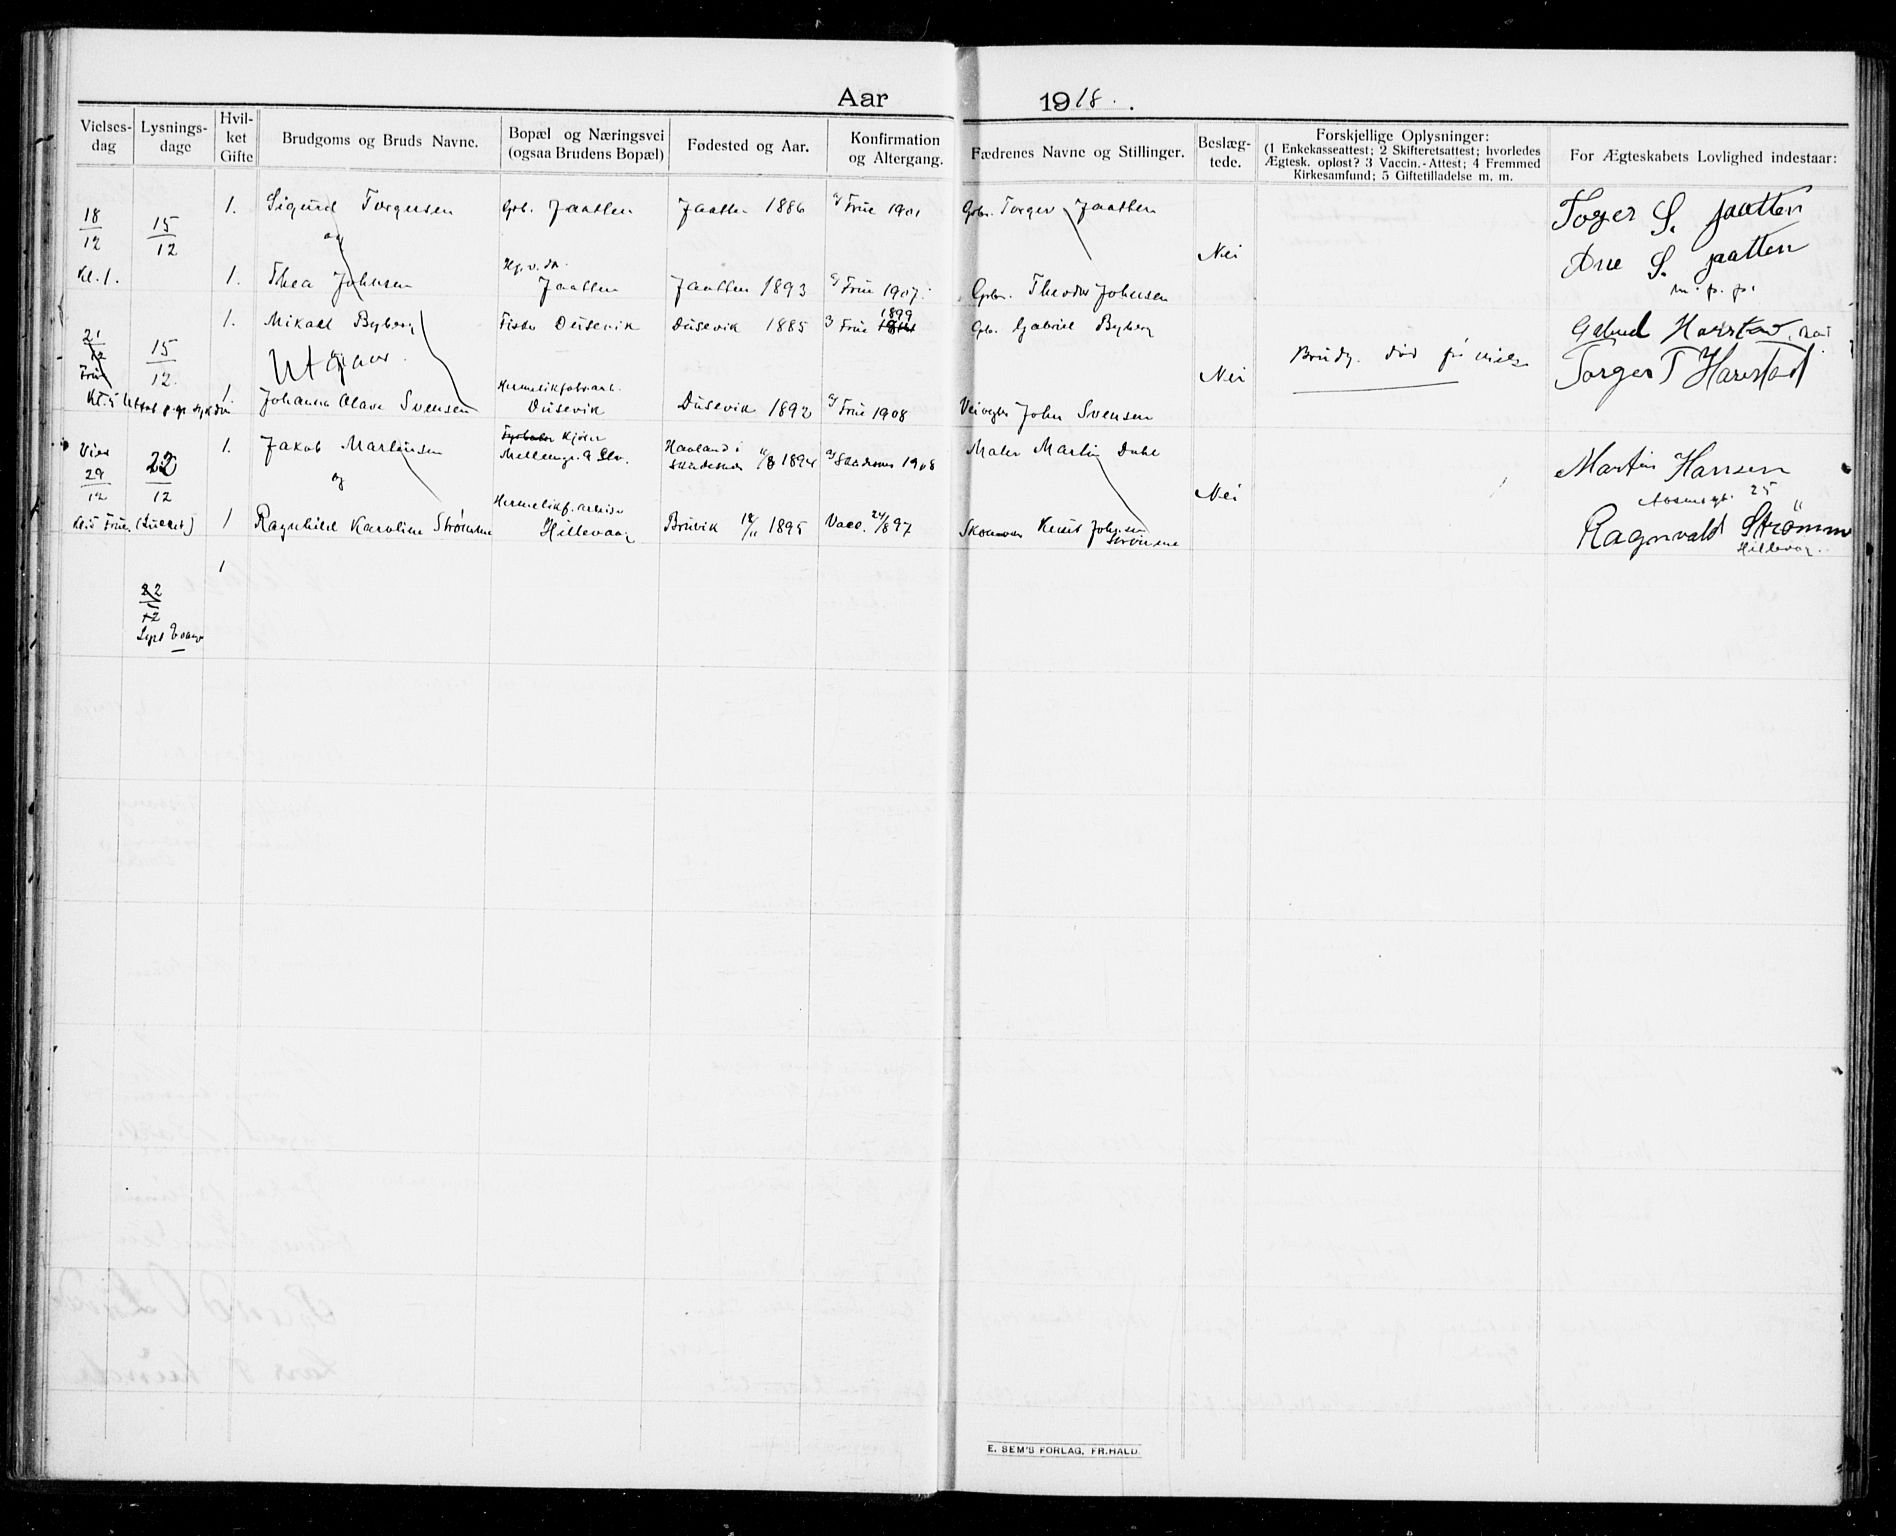 Aar 1918.
Vielses-dag
Lysnings-dage
Hvil-ket Gifte
Brudgoms og Bruds Navne.
Bopæl og Næringsvei (ogsaa Brudens Bopæl)
Fødested og Aar.
Konfirmation og Altergang.
Fædrenes Navne og Stillinger.
Beslæg-tede.
Forskjellige Oplysninger:
(1 Enkekasseattest; 2 Skifteretsattest; hvorledes
Ægtesk. opløst? 3 Vaccin.-Attest; 4 Fremmed
Kirkesamfund; 5 Giftetilladelse m. m.
For Ægteskabets Lovlighed indestaar:
18/12 15/12 1. Sigurd Torgersen Grb. Jaatten Jaatten 1886 Frue 1901 Grbr. Torger Jaatten Toger S. Jaatten
og Nei Ane S. Jaatten
m. p. p.
Kl. 1. 1. Thea Johnsen Jaatten Jaatten 1893 Frue 1907 Grbr. Theodor Johnsen
21/12 15/12 1. Mikael Byberg Fisker Dusevik Dusevik 1885 Frue 1899 Grb. Gabriel Byberg
Frue Utgaar. Nei Brudg. død før vielse Torger T Harestad
1. Johanna Olave Svensen Hermetikfabrarb. Dusevik Dusevik 1892 Frue 1908 John Svensen
Viet 29/12 22/12 1. Jakob Martinsen Kjører Haaland i Skudesnes 1894 Skudesnes 1908 Maler Martin Dahl Martin Hansen
og Nei 25
Kl. 5 Frue. 1 Ragnhild Karoline Strømme Hermetikf. arbeider Hillevaag Bruvik 1895 Vacc. 24/8 97 Knut Johnsen Strømme Ragnvald Strømme
Hillevag.
1
22/12
Lyst
E. SEM'S FORLAG, FR.HALD.